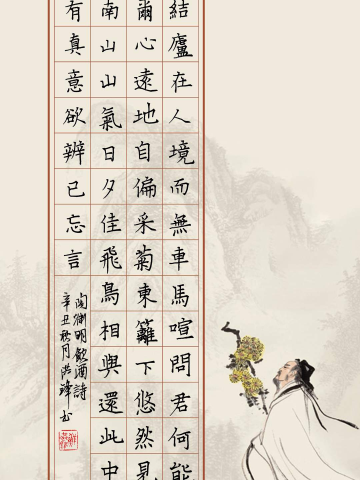 結廬在人境而無車馬喧問君何能
爾心遠地自偏采菊東籬下悠然見
南山山氣日夕佳飛鳥相與還此中
有真意欲辨已忘言
陶淵明飲酒詩
辛丑秋月洪